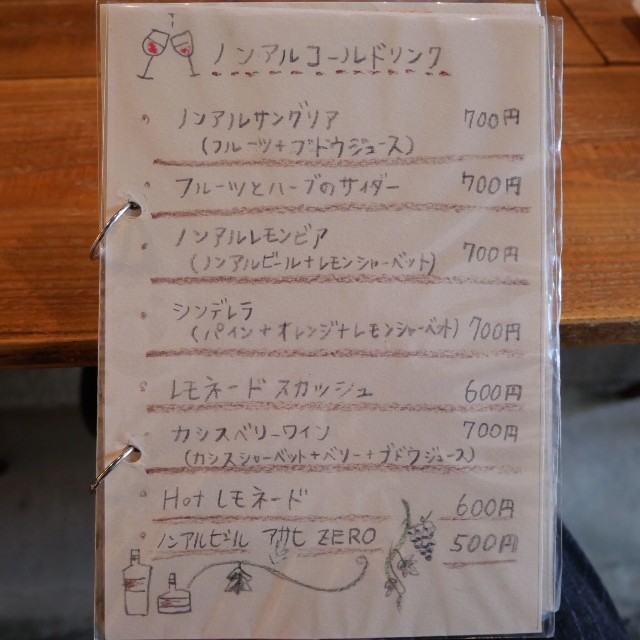 ノンアルコールドリンク
ノンアルサングリア 700円
(フルーツ+ブドウジュース)
フルーツとハーブのサイダー 700円
ノンアルレモンビア
(ノンアルビール+レモンシャーベット) 700円
シンデレラ
(パイン+オレンジ+レモンシャーベット) 700円
レモネードスカッシュ 600円
カシスベリーワイン 700円
(カシスシャーベット+ベリー+ブドウジュース)
Hot レモネード 600円
ノンアルビール アサヒ ZERO 500円